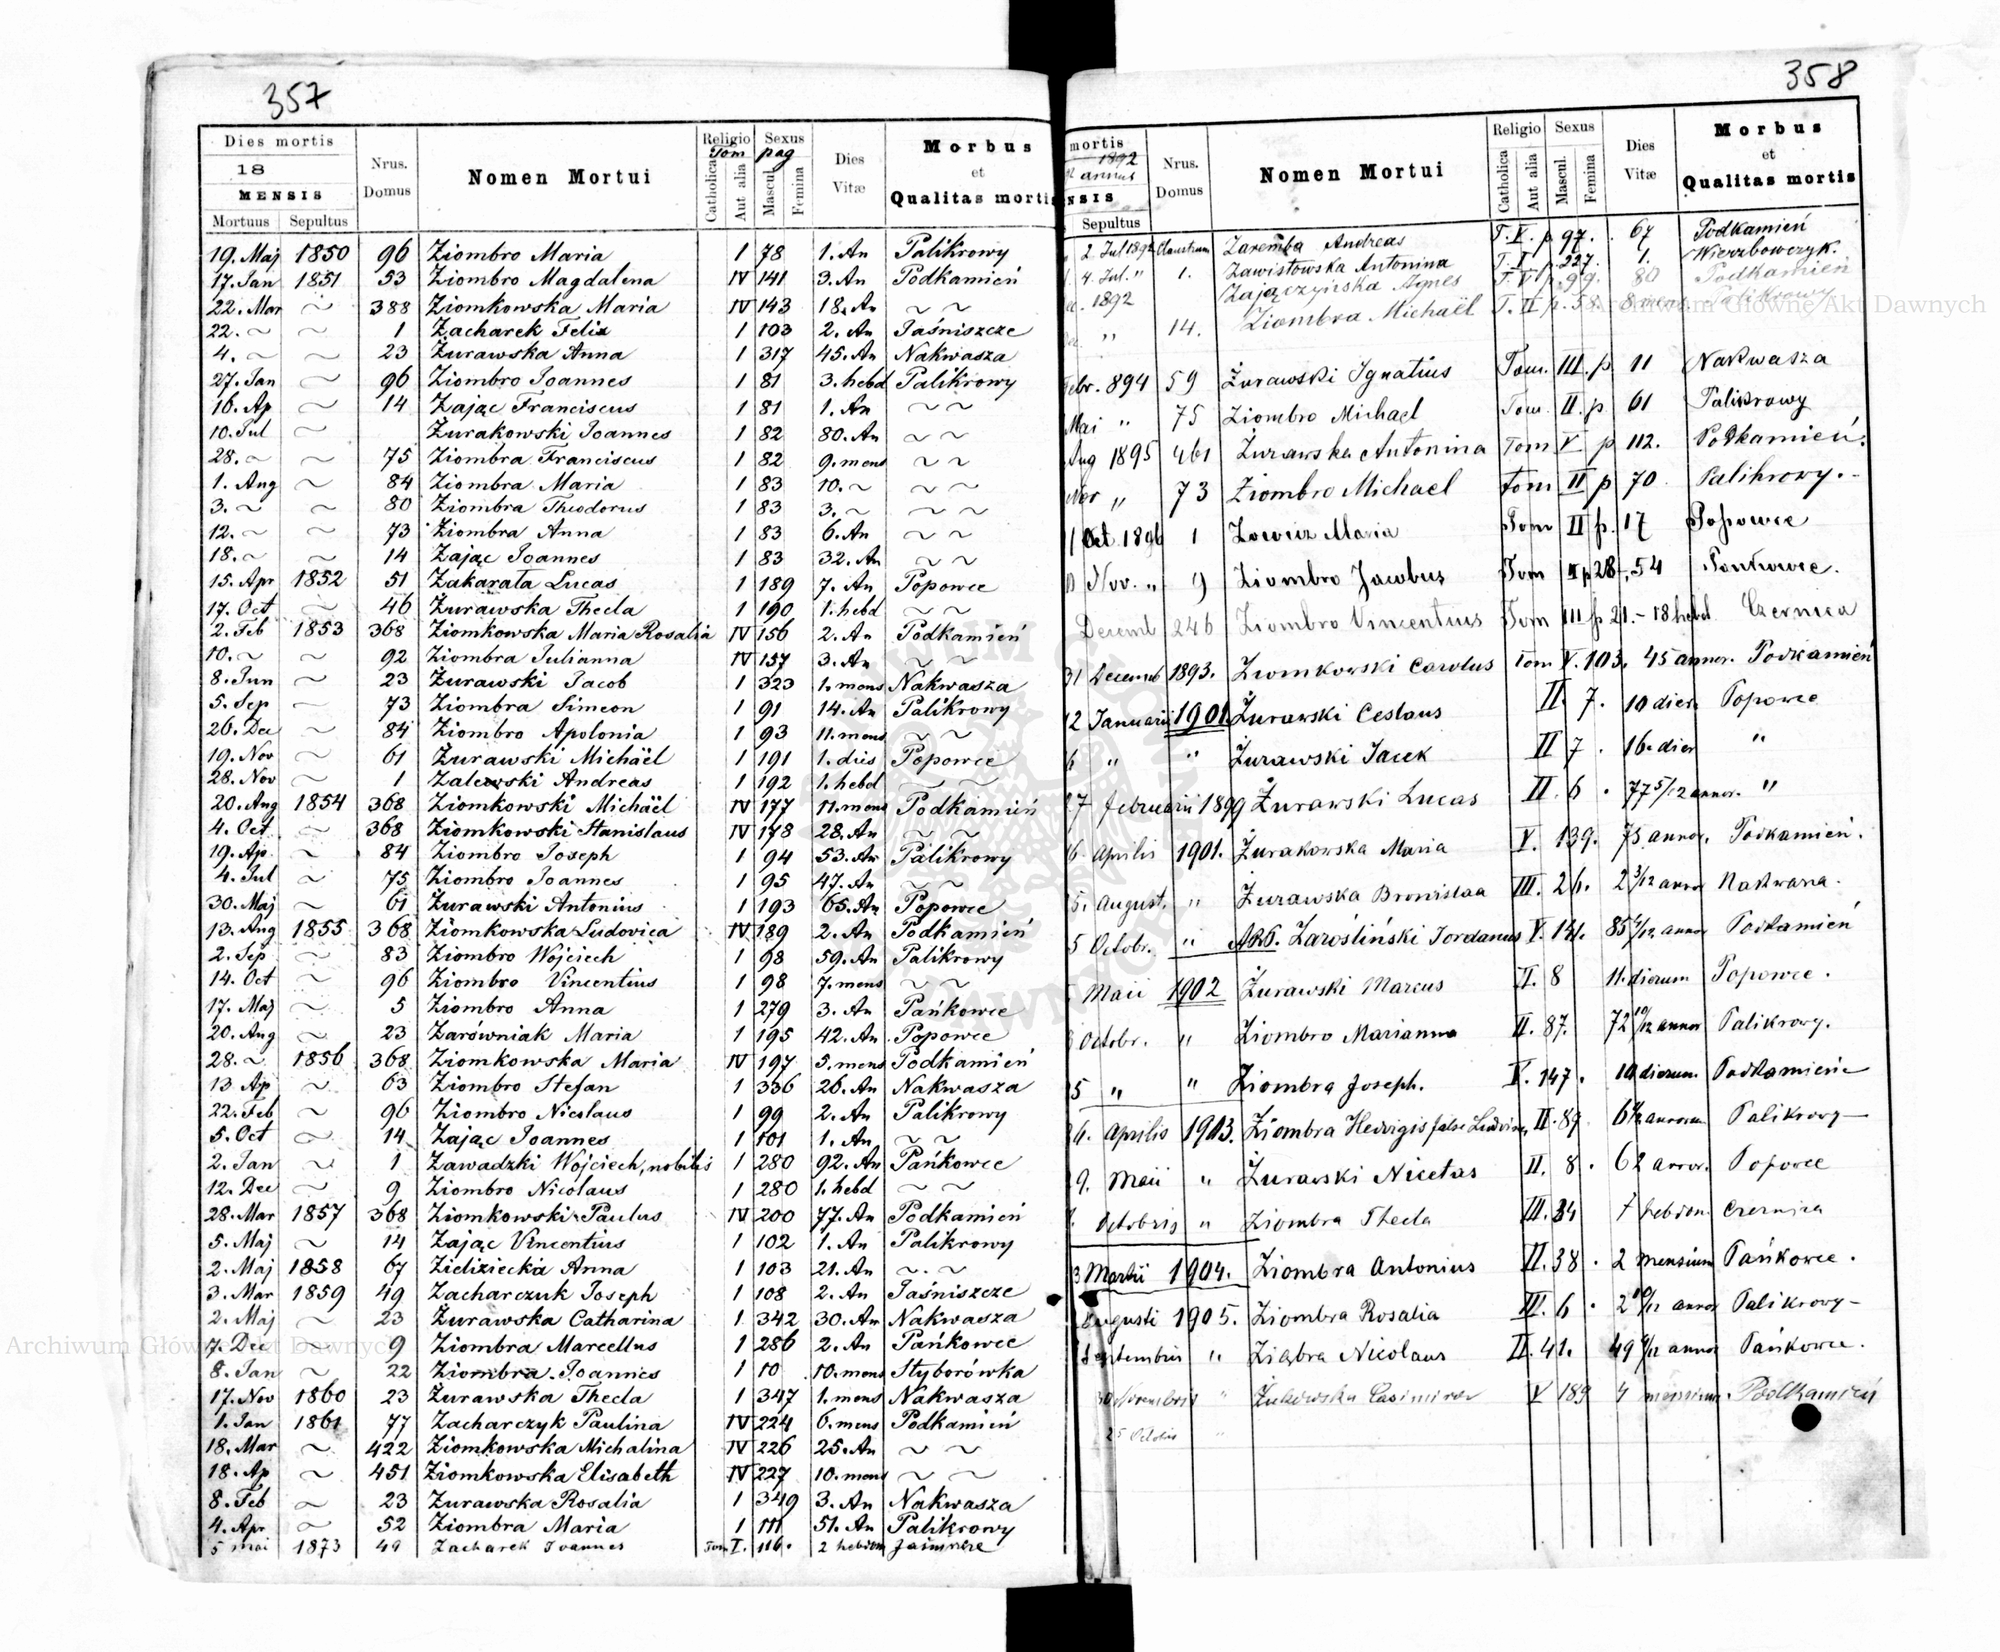 357
Dies mortis
18
MENSIS
Mortuus Sepultus
Nrus. Domus
Nomen Mortui
Religio Tom
Catholica Aut alia
Sexus pag
Mascul. Femina
Dies Vitæ
Morbus et Qualitas mortis
19. Maj 1850 96 Ziombro Maria I 78 1. An Palikrowy
17. Jan 1851 53 Ziombro Magdalena IV 141 3. An Podkamień
22. Mar ~ 388 Ziomkowska Maria IV 143 18. An ~ ~
22. ~ ~ 1 Zacharek Felix I 103 2. An Jaśniszcze
4. ~ ~ 23 Żurawska Anna I 317 45. An Nakwasza
27. Jan ~ 96 Ziombro Joannes I 81 3. hebd Palikrowy
16. Ap ~ 14 Zając Franciscus I 81 1. An ~ ~
10. Jul ~ Żurakowski Joannes I 82 80. An ~ ~
28. ~ ~ 75 Ziombra Franciscus I 82 9. mens ~ ~
1. Aug ~ 84 Ziombra Maria I 83 10. ~ ~ ~
3. ~ ~ 80 Ziombra Theodorus I 83 3. ~ ~ ~
12. ~ ~ 73 Ziombra Anna I 83 6. An ~ ~
18. ~ ~ 14 Zając Joannes I 83 32. An ~ ~
15. Apr 1852 51 Zakarata Lucas I 189 7. An Popowce
17. Oct ~ 46 Żurawska Thecla I 190 1. hebd ~ ~
2. Feb 1853 368 Ziomkowska Maria Rosalia IV 156 2. An Podkamień
10. ~ ~ 92 Ziombra Julianna IV 157 3. An ~ ~
8. Jun ~ 23 Żurawski Jacob I 323 1. mens Nakwasza
5. Sep ~ 73 Ziombra Simeon I 91 14. An Palikrowy
26. Dec ~ 84 Ziombro Apolonia I 93 11. mens ~ ~
19. Nov ~ 61 Żurawski Michäel I 191 1. dies Popowce
28. Nov ~ 1 Zalewski Andreas I 192 1. hebd ~ ~
20. Aug 1854 368 Ziomkowski Michäel IV 177 11. mens Podkamień
4. Oct ~ 368 Ziomkowski Stanislaus IV 178 28. An ~ ~
19. Ap ~ 84 Ziombro Joseph I 94 53. An Palikrowy
4. Jul ~ 75 Ziombro Joannes I 95 47. An ~ ~
30. Maj ~ 61 Żurawski Antonius I 193 65. An Popowce
13. Aug 1855 368 Ziomkowska Ludovica IV 189 2. An Podkamień
2. Sep ~ 83 Ziombro Wojciech I 98 59. An Palikrowy
14. Oct ~ 96 Ziombro Vincentius I 98 7. mens ~ ~
17. Maj ~ 5 Ziombro Anna I 279 3. An Pańkowce
20. Aug ~ 23 Zarówniak Maria I 195 42. An Popowce
28. ~ 1856 368 Ziomkowska Maria IV 197 5. mens Podkamień
13. Ap ~ 63 Ziombro Stefan I 336 26. An Nakwasza
22. Feb ~ 96 Ziombro Nicolaus I 99 2. An Palikrowy
5. Oct ~ 14 Zając Joannes I 101 1. An ~ ~
2. Jan ~ 1 Zawadzki Wojciech, nobilis I 280 92. An Pańkowce
12. Dec ~ 9 Ziombro Nicolaus I 280 1. hebd ~ ~
28. Mar 1857 368 Ziomkowski Paulus IV 200 77. An Podkamień
5. Maj ~ 14 Zając Vincentius I 102 1. An Palikrowy
2. Maj 1858 67 Zieliziecka Anna I 103 21. An ~ ~
3. Mar 1859 49 Zacharczuk Joseph I 108 2. An Jaśniszcze
2. Maj ~ 23 Żurawska Catharina I 342 30. An Nakwasza
7. Dec ~ 9 Ziombra Marcellus I 286 2. An Pańkowce
8. Jan ~ 22 Ziombra Joannes I 10 10. mens Styborówka
17. Nov 1860 23 Żurawska Thecla I 347 1. mens Nakwasza
1. Jan 1861 77 Zacharczyk Paulina IV 224 6. mens Podkamień
18. Mar ~ 422 Ziomkowska Michalina IV 226 25. An ~ ~
18. Ap ~ 451 Ziomkowska Elisabeth IV 227 10. mens ~ ~
8. Feb ~ 23 Żurawska Rosalia I 349 3. An Nakwasza
4. Apr ~ 52 Ziombra Maria I 111 51. An Palikrowy
5 mai 1873 49 Zacharek Joannes Tom I. 116. 2 hebdom
358
mortis
1892
annus
NSIS
Sepultus
Nrus. Domus
Nomen Mortui
Religio
Catholica Aut alia
Sexus
Mascul. Femina
Dies Vitæ
Morbus et Qualitas mortis
2. Jul 1892 Claustrum Zaremba Andreas T. V. p. 97. 67 Podkamień
4. Jul. " 1. Zawistowska Antonina T. I p. 227. 1. Wierzbowczyk.
1892 Zajączyńska Agnes T. V p. 99. 80 Podkamień
" 14. Ziombra Michaël T. II p. 58. 8 mens Palikrowy
Febr. 894 59 Żurawski Ignatius Tom. III. p 11 Nakwasza
Mai " 75 Ziombro Michael Tom. II. p 61 Palikrowy
Aug 1895 461 Żurawska Antonina Tom V p 112. Podkamień.
Nov " 73 Ziombro Michael Tom II p 70 Palikrowy.-
Oct 1896 1 Maria Tom II p. 17 Popowce
Nov. " 9 Ziombro Jacobus Tom II p 28, 54 Pańkowce.
Decemb 246 Ziombro Vincentius Tom III p 21. - 18 hebd Czernica
31 Decemb 1893. Ziomkowski Carolus Tom V. 103. 45 annor. Podkamień
12 Januarii 1901. Żurawski Ceslaus II. 7. 10 dier Popowce
6 " " Żurawski Jacek II 7. 16. dier "
27 februarii 1899 Żurawski Lucas II. 6. 77 5/12 annor. "
6. Aprilis 1901. Żurakowska Maria V. 139. 75 annor. Podkamień.
5. August. " Żurawska Bronislaa III. 26. 2 3/12 annor Nakwasza.
5 Octobr. " Zarośliński Jordanus V. 141. 85 annor Podkamień
Maii 1902 Żurawski Marcus II. 8 11. dierum Popowce.
Octobr. " Ziombro Marianna II. 87. 72 10/12 annor Palikrowy.
5 " " Ziombra Joseph. V. 147. dierum Podkamień
Aprilis 1903. Ziombra Hedvigis false Ludvina II. 89 annorum Palikrowy—
9. Maii " Żurawski Nicetas II. 8. 62 annor. Popowce
Octobris " Ziombra Thecla III. 34 7 hebdom. Czernica
3 Martii 1904. Ziombra Antonius II. 38. 2 mensium Pańkowce.
Augusti 1905. Ziombra Rosalia III. 6. 2 10/12 annor Palikrowy—
Septembris " Ziąbra Nicolaus II. 41. 49 annor Pańkowce.
Novembris " Casimira V 189 4 mensium. Podkamień
25 Octobris "
Archiwum Główne Akt Dawnych
Archiwum Główne Akt Dawnych